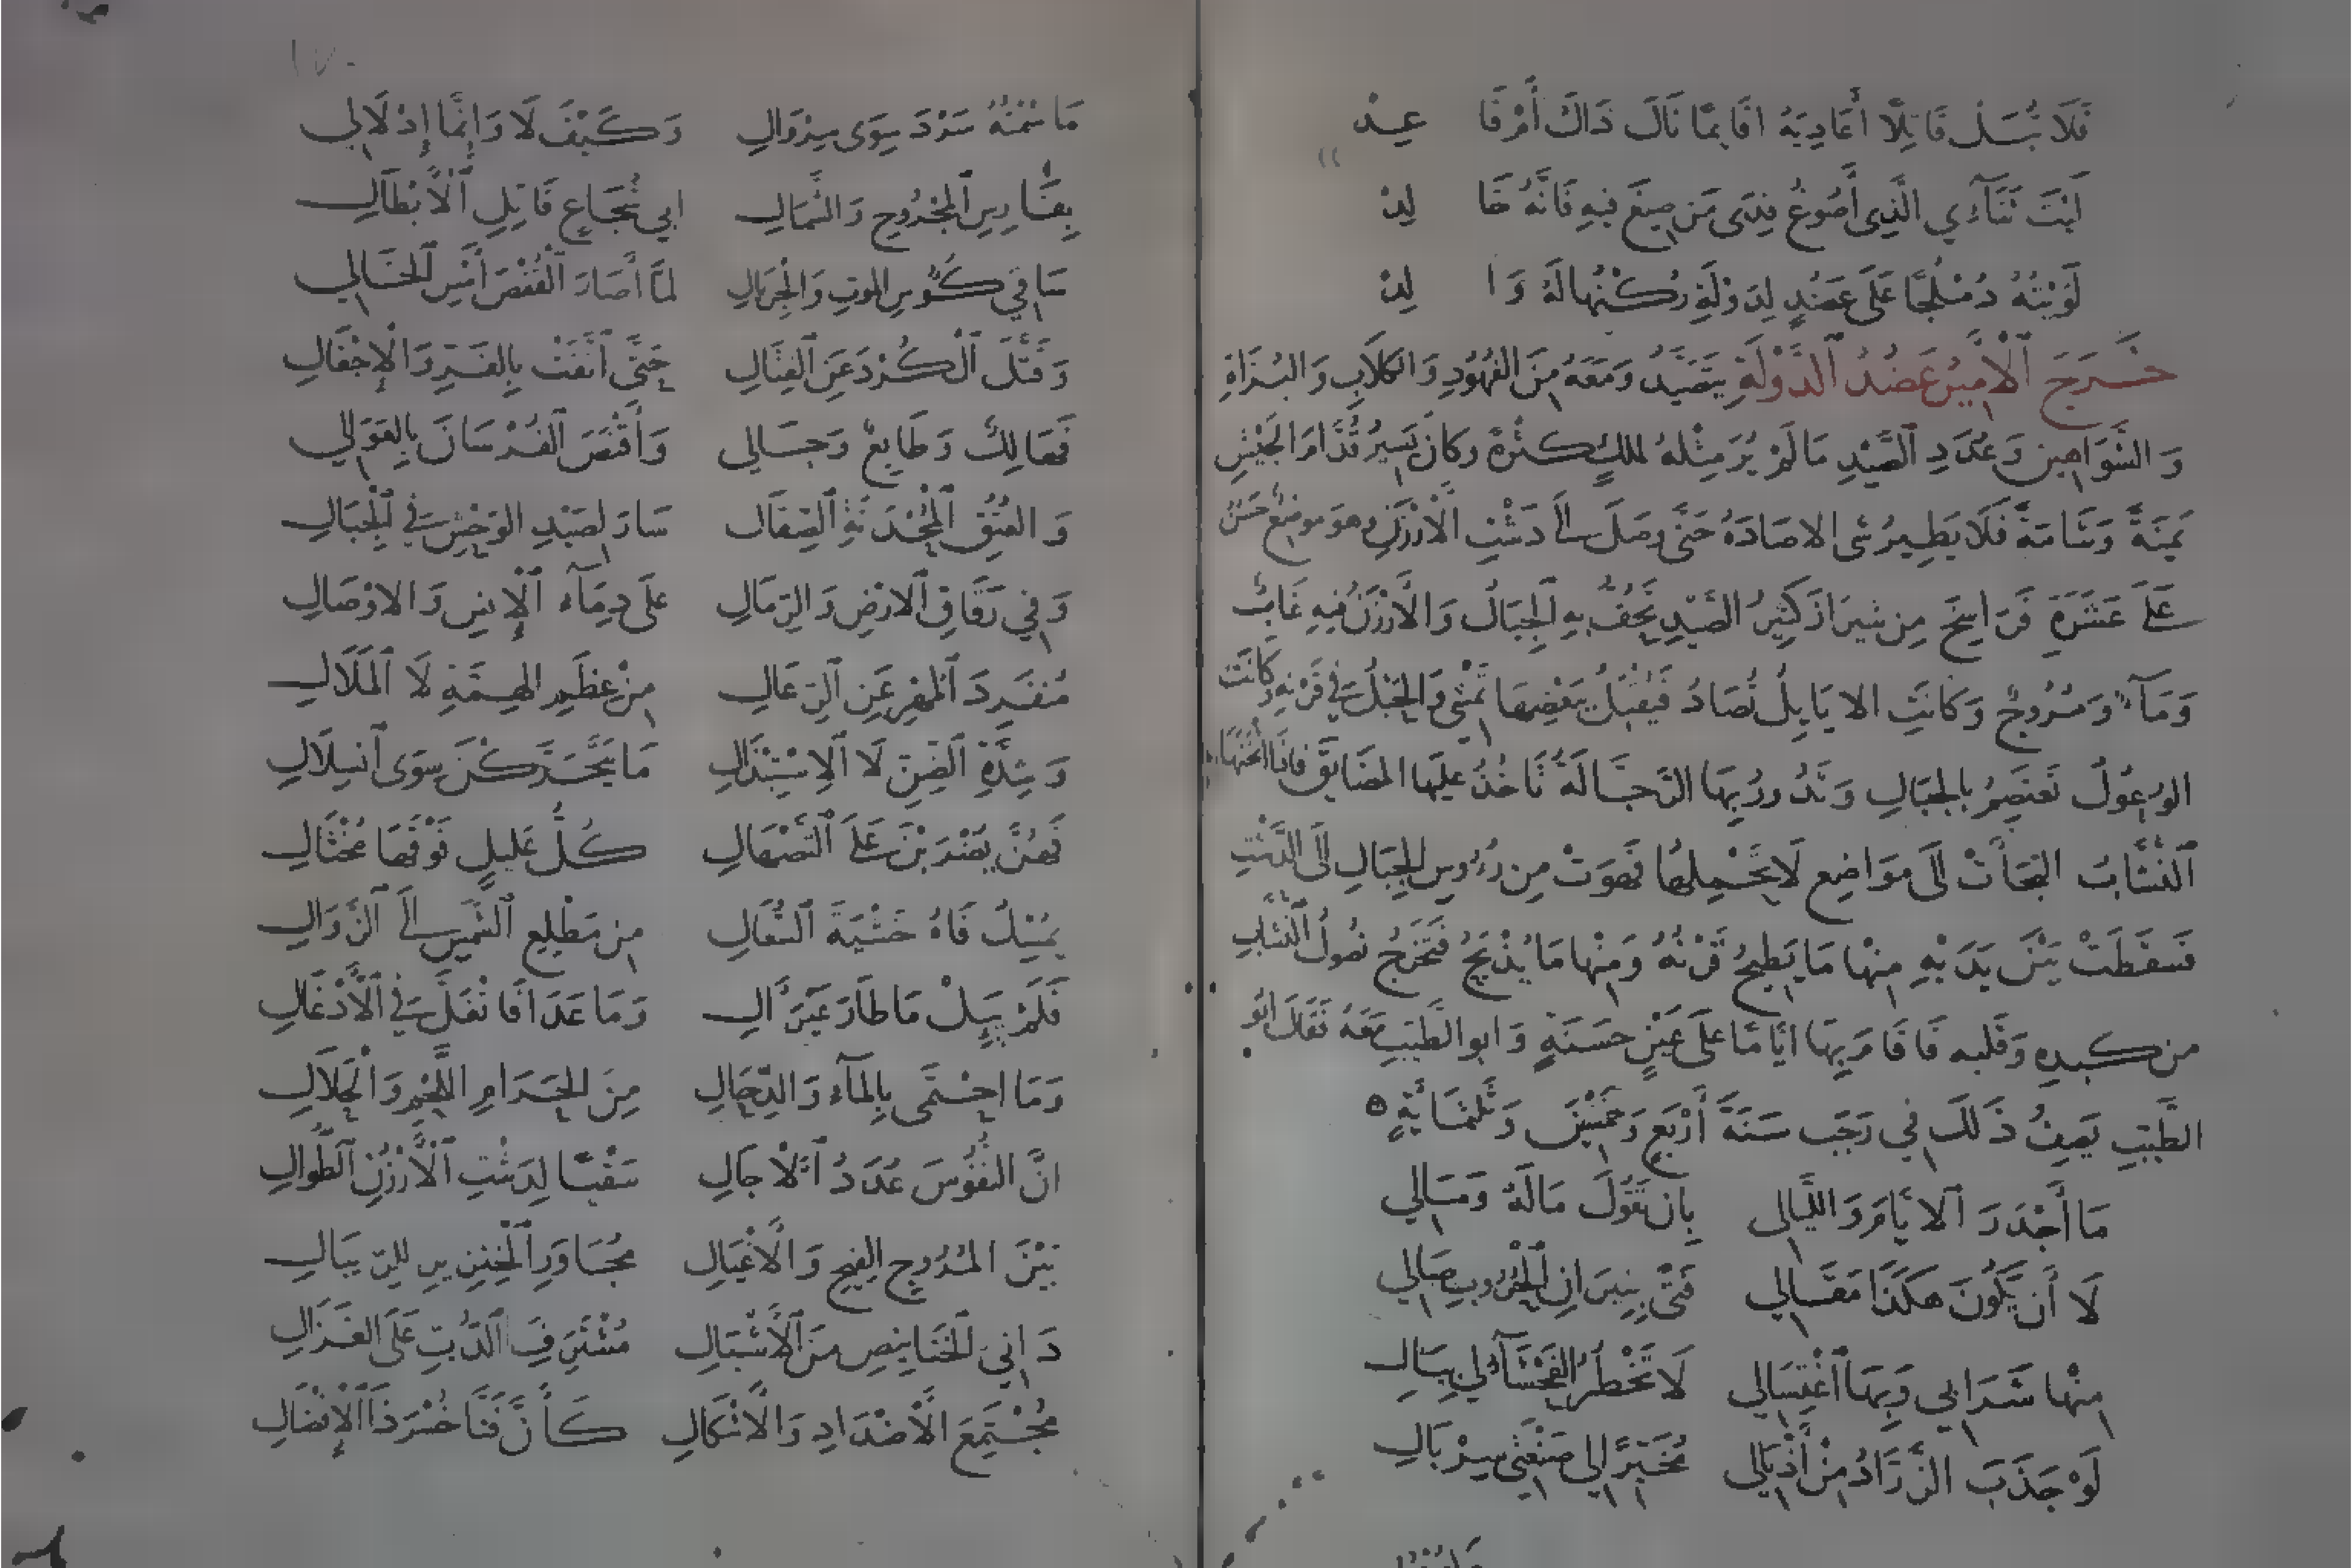 فَلَا تُبَلْ قَاتِلًا أَعَادِيَهُ اقَائِمًا نَالَ ذَاكَ أَمْ قَا عِدْ
لَيْتَ ثَنَآءِي الَّذِي أَصُوغُ فِدَى مَن صِيغَ فِيهِ فَانَّهُ خَا لِدْ
لَوَيْتُهُ دُمْلُجًا عَلَى عَضُدٍ لِدَوْلَةٍ رُكْنُهَا لَهُ وَا لِدْ
خَرَجَ ٱلْأَمِيرُ عَضُدُ ٱلدَّوْلَةِ يَتَصَيَّدُ وَمَعَهُ مِنَ الفُهُودِ وَالكِلَابِ وَالبُزَاةِ
وَالشَّوَاهِينِ وَعُدَدِ الصَّيْدِ مَا لَمْ يُرَ مِثْلهُ لملكٍ كثْرةً وكانَ يَسيرُ قُدَّامَ الجَيْشِ
يَمنَةً وَشَامَةً فَلَا يَطِيرُ شى الا صَادَهُ حَتَّى وصَلَ الَى دَشْتِ الْأَرْزَنِ وهوَ موضعٌ حَسَنٌ
عَلَى عَشَرَةِ فَرَاسِخَ مِن شيرَازَ كثِيرُ الصَّيْدِ تَحُفُّ بِهِ الْجِبَالُ وَالْأَرْزَنُ فيهِ غَابٌ
وَمَآءٌ وَمُرُوجٌ وَكَانَتِ الايَايِلُ تُصَادُ فَيُقْبِلُ بَعْضِهَا تَمْشِى وَالحَبْلُ فى قَرْنِهِ وَكَانَتْ
الوُعُولُ تَعْتَصِمُ بِالجِبَالِ وَتَدُورُ بِهَا الرَّجَّالَةُ تَاخُذُ عليهَا المَضَايِقَ فاذَا اثْخَنَهَا
النُّشَّابُ الْتجَأَتْ الَى مَوَاضِعِ لَا تَحْمِلُهَا فَهَوَتْ مِن رُءُوسِ الْجِبَالِ الَى الدَّشْتِ
فَسَقَطَتْ بَيْنَ يَدَيْهِ مِنْهَا مَا يَطِيحُ قَرْنُهُ وَمِنْها مَا يُذْبَحُ فَتَخْرُجُ نُصُولُ النُّشَّابِ
من كبدِهِ وَقَلْبه فَاقَامَ بِهَا ايَّامًا عَلَى عَيْنٍ حسَنَةٍ وَابو الطَّيِّبِ مَعَهُ فَقَالَ ابُو
الطَّيِّبِ يَصِفُ ذَلكَ فِي رَجَب سَنَةَ أَرْبَعٍ وَخَمْسِينَ وَثَلثمَائَةٍ
مَا أَجْدَرَ ٱلايَّامَ وَاللَّيَالِي بِأَن تَقُولَ مَالَهُ وَمَالِي
لَا أَن يَكُونَ هكَذَا مَقَالِي فَتًى بِنِيرَانِ الْحُرُوبِ صَالِي
مِنْهَا شَرَابِي وَبِهَا ٱغْتِسَالِي لَا تَخْطُرُ الفَحْشَآءُ لِي بِبَالِ
لَوْ جَذَبَ الزَّرَّادُ مِنْ أَذْيَالِي مُخَيِّرًا لِي صَنْعَتَى سِرْبَالِ
مَا سُمْتُهُ سَرْدَ سِوَى سِرْوَالِ وَكَيْفَ لَا وَإِنَّمَا إِدْلَالِي
بِفَارِسِ ٱلمَجْرُوحِ وَالشَّمَالِ ابي شُجَاعٍ قَاتِلِ ٱلْأَبْطَالِ
سَاقِي كُؤُوسِ الموتِ وَالجِرْيَالِ لَمَّا أَصَارَ ٱلْقُفْصَ أَمْسِ ٱلخَالِي
وَقَتَّلَ ٱلْكُرْدَ عَنِ ٱلقِتَالِ حَتَّى ٱتَّقَتْ بِالفَرِّ وَالْإِجْفَالِ
فَهَالِكٌ وَطَايِعٌ وَجَالِي وَٱقْتَنَصَ ٱلفُرْسَانَ بِالعَوَالِي
وَالعُتُقِ ٱلْمُحْدَثَةِ ٱلصِّقَالِ سَارَ لِصَيْدِ الوَحْشِ فِي الْجِبَالِ
وَفِي رَقَاقِ ٱلارْضِ وَالرِّمَالِ عَلَى دِمَآءِ ٱلْإِنسِ وَالاوْصَالِ
مُنفَرِدَ ٱلمُهْرِ عَنِ ٱلرِّعَالِ مِنْ عِظَمِ الهِمَّةِ لَا ٱلمَلَالِ
وَشِدَّةِ ٱلضِّنِّ لَا ٱلِاسْتِبْدَالِ مَا يَتَحَرَّكْنَ سِوَى ٱنسِلَالِ
فَهُنَّ يُضْرَبْنَ عَلَى ٱلتَّصْهَالِ كُلُّ عَلِيلٍ فَوْقَهَا مُخْتَالِ
يُمْسِكُ فَاهُ خَشْيَةَ السُّعَالِ مِن مَطْلِعِ ٱلشَّمْسِ الَى ٱلزَّوَالِ
فَلَمْ يَئِلْ مَا طَارَ غَيْرَ آلِ وَمَا عَدَا فَانْغَلَّ فِي ٱلْأَدْغَالِ
وَمَا احْتَمَى بِالمَآءِ وَالدِّحَالِ مِنَ الحَرَامِ اللَّحْمِ وَالْحَلَالِ
انَّ النُّفُوسَ عُدَدُ ٱلْآجَالِ سَقْيًا لِدَشْتِ ٱلْأَرْزَنِ ٱلطُّوَالِ
بَيْنَ المُرُوجِ الفِيحِ وَالْأَغْيَالِ مُجَاوِرِ الْخِنْزِيرِ لِلرِّيبَالِ
دَانِي الْخَنَانِيصِ مِنَ ٱلْأَشْبَالِ مُشْتَرِفَ ٱلدُّبِّ عَلَى الغَزَالِ
مُجْتَمِعَ الْأَضْدَادِ وَالْأَشْكَالِ كَأَنَّ فَنَّاخُسْرَ ذَا ٱلْإِفْضَالِ